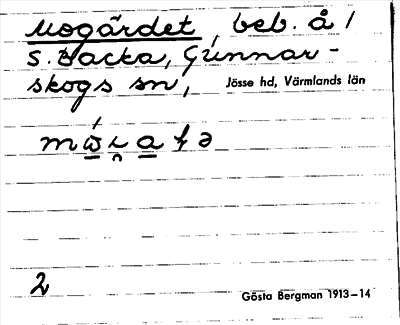 Mogärdet, beb. å /
S. Backa, Gunnar-
skogs sn,
Jösse hd, Värmlands län
2
Gösta Bergman 1913–14